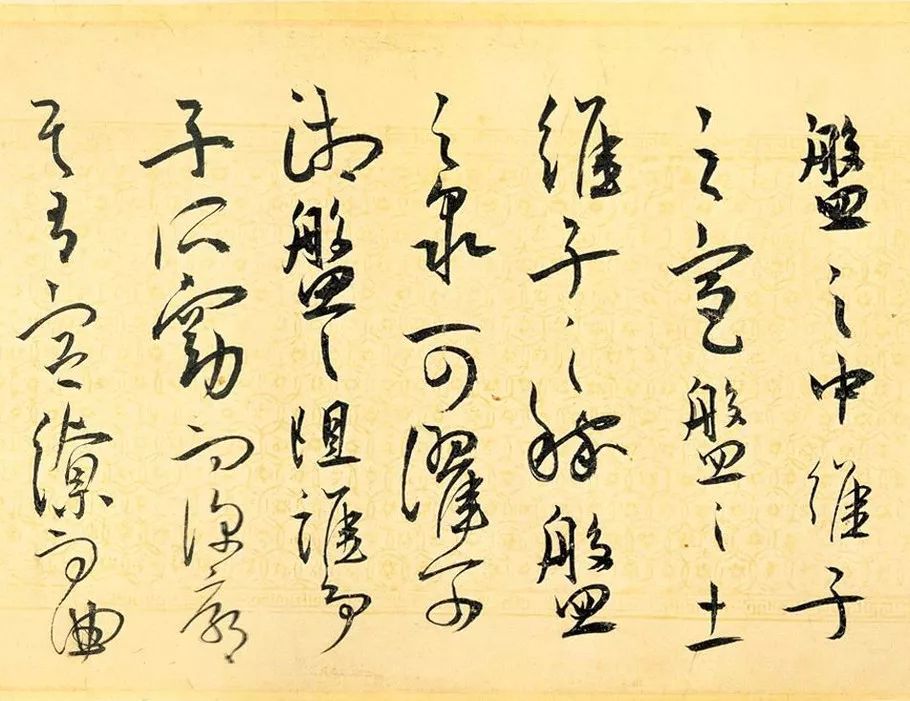 盤之中維子
之宮盤之土
維子之稼盤
之泉可濯可
湘盤之阻誰爭
子所窈而深廓
其有容繚而曲